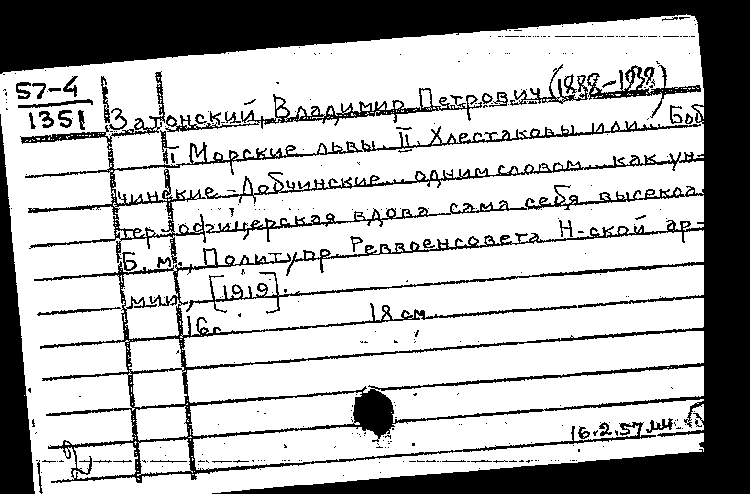 57-4
1351
Затонский, Владимир Петрович (1888-1938)
I. Морские львы. II. Хлестаковы или... Боб
чинские-Добчинские... одним словом... как ун-
тер-офицерская вдова сама себя высекла.
Б.м., Политупр. Реввоенсовета Н-ской ар-
мии, [1919].
16с. 18 см.
16.2.57
2